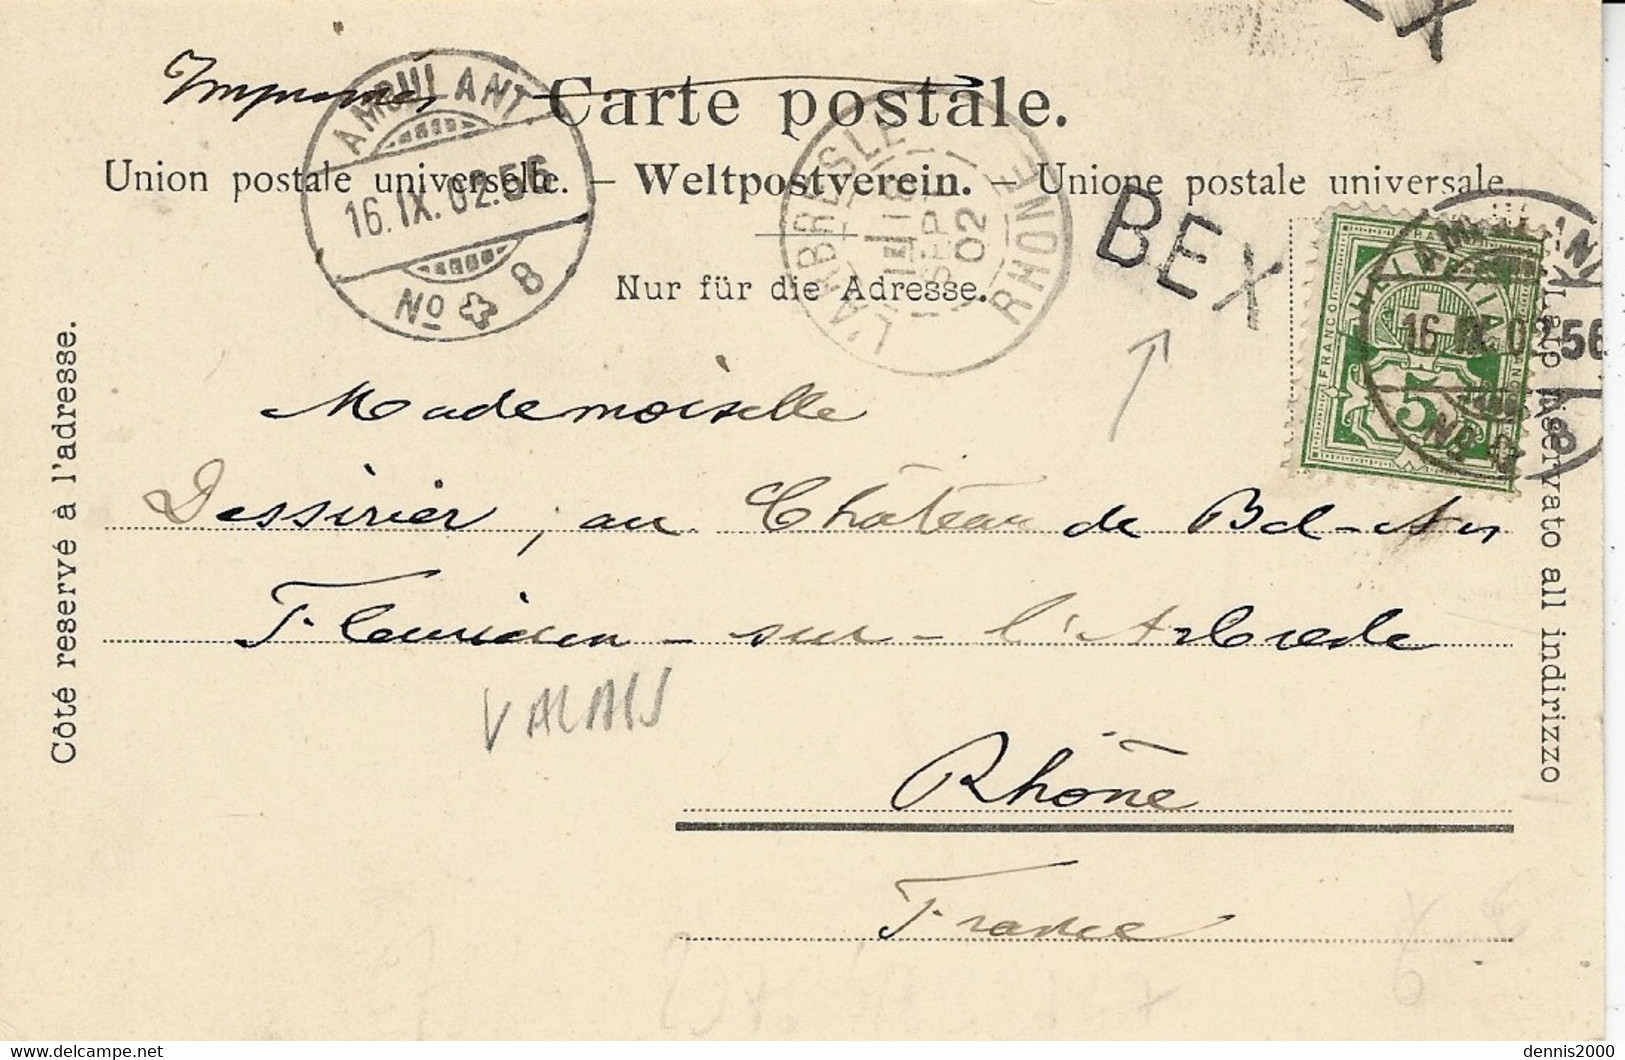 Imprimé
Carte postale.
Union postale universelle. — Weltpostverein. — Unione postale universale.
Nur für die Adresse.
AMBULANT
16.IX.02.56
No 8
L'ARBRESLE
18
SEPT
02
RHONE
BEX
EX
HELVETIA
FRANCO
5
AMBULANT
16.IX.02.56
No 8
Côté reservé à l'adresse.
Lato riservato all indirizzo
Mademoiselle
Dessirier, au Château de Bel-Air
Fleurieux-sur-l'Arbresle
VALAIS
Rhône
France
dennis2000